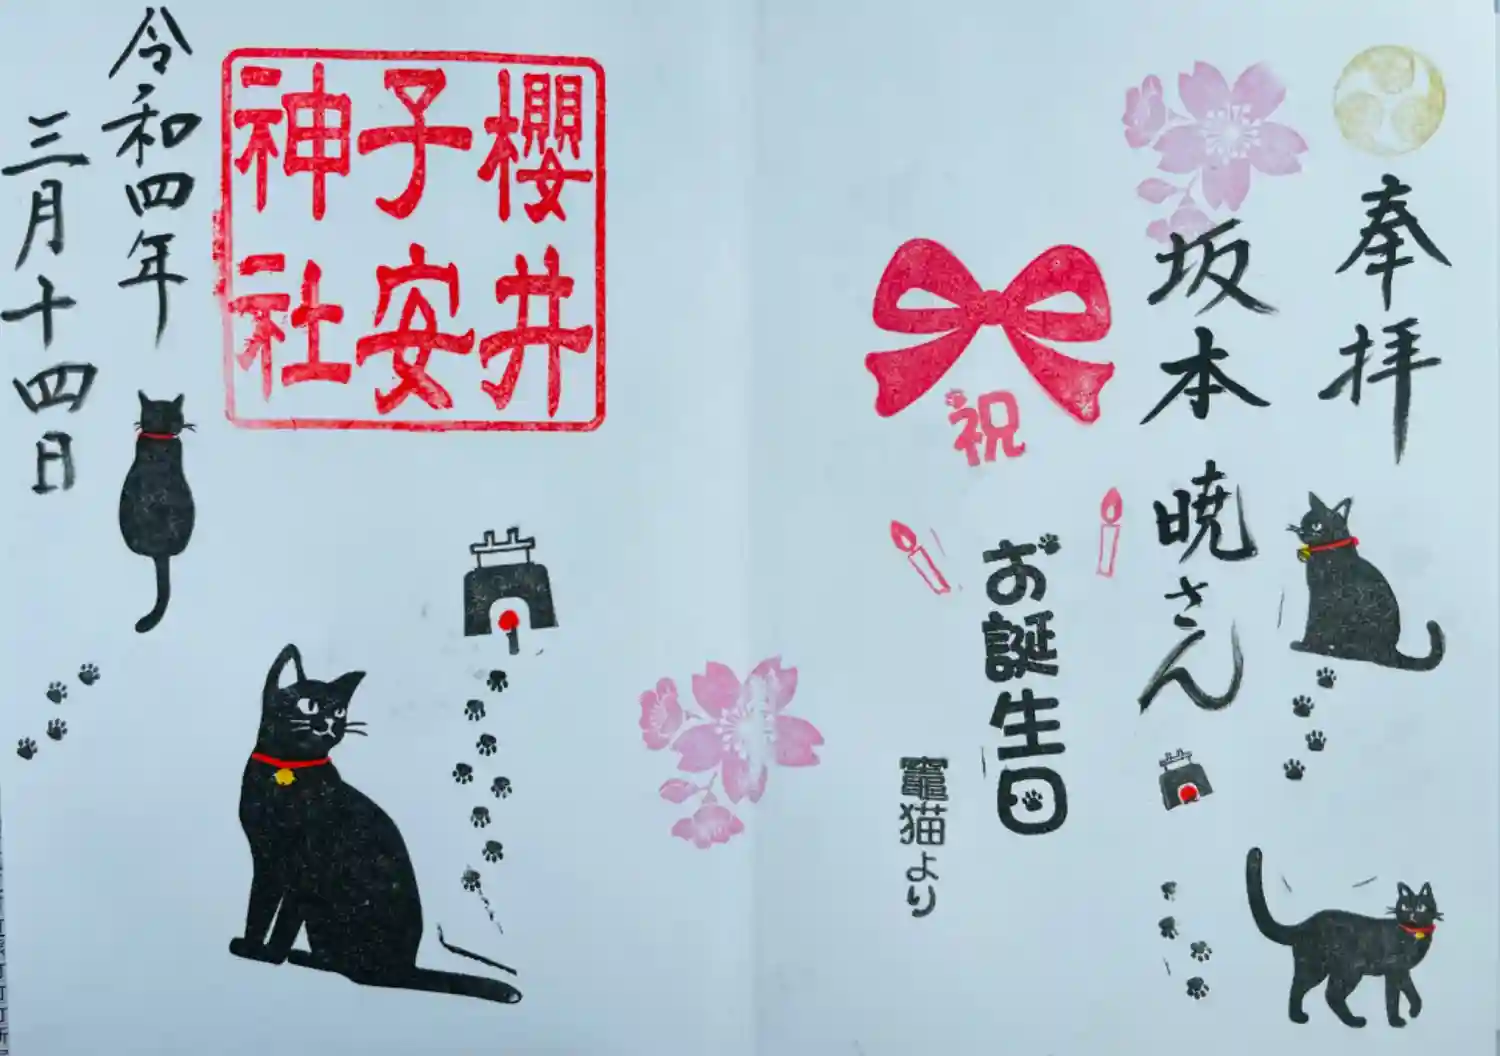 奉拝
坂本 暁さん
祝
お誕生日
竈猫より
櫻井
子安
神社
令和四年
三月十四日